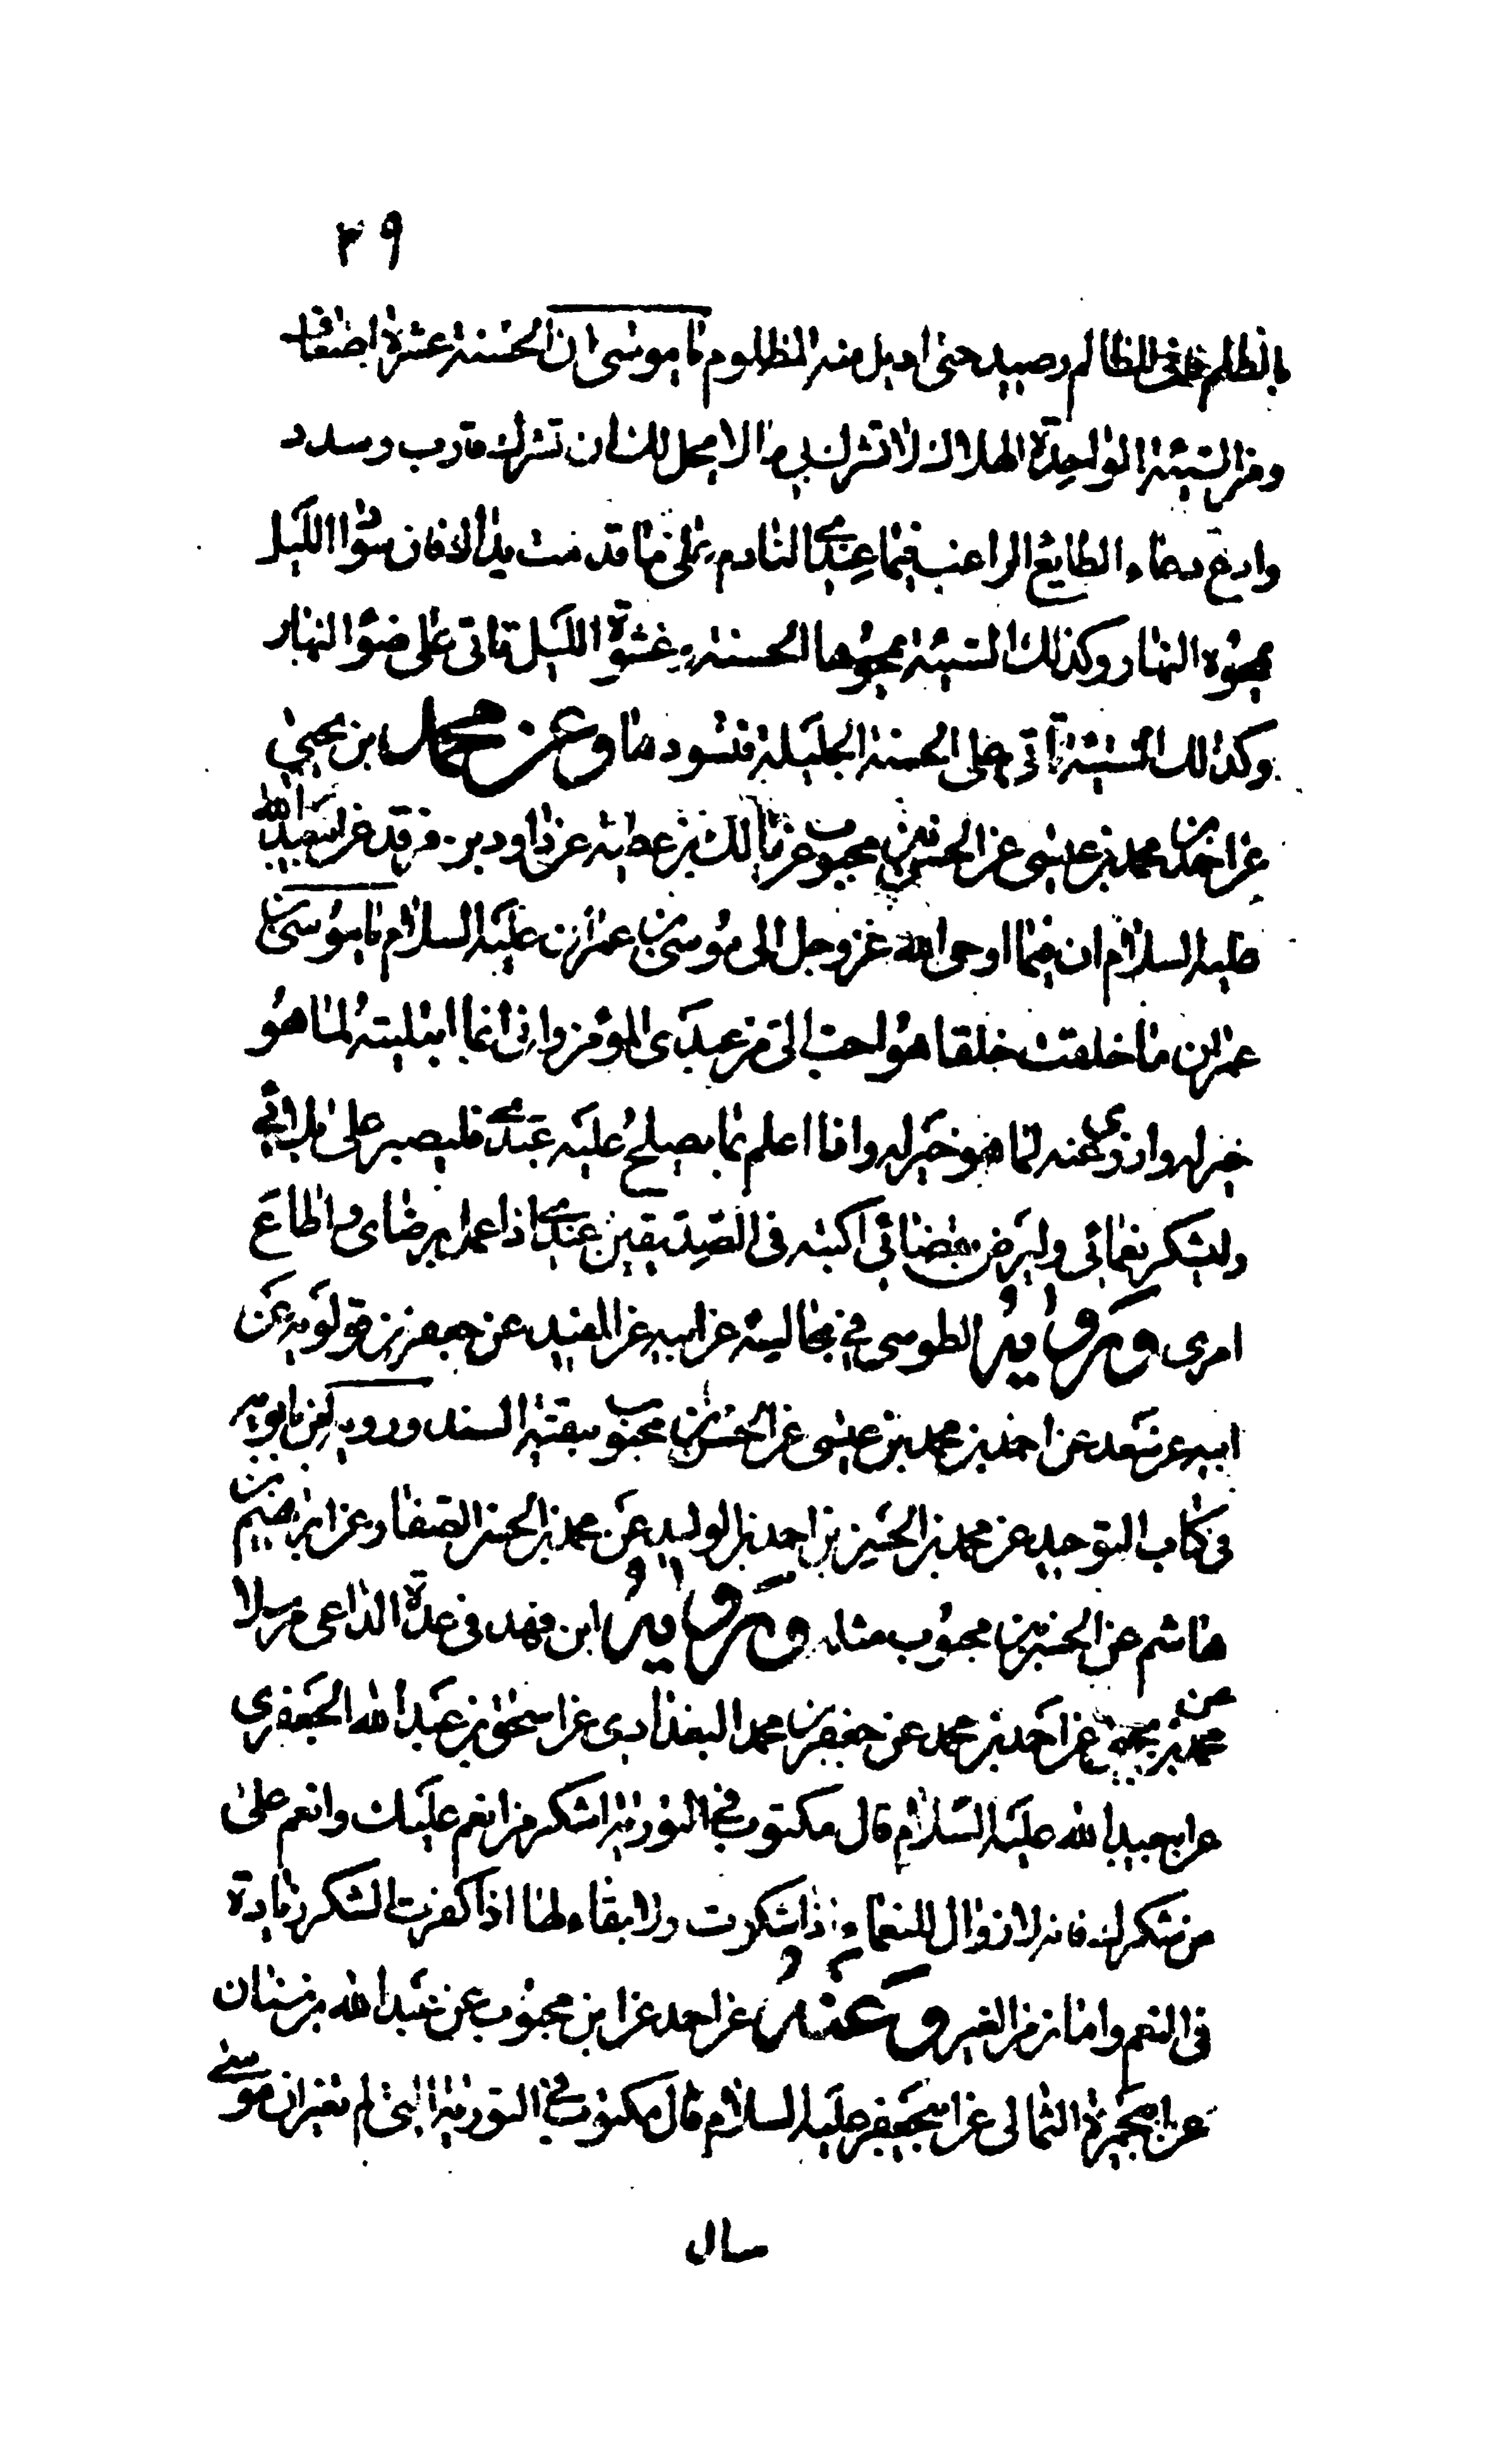 ٣٩
بالظلم فانى للظالم رصيد حتى اديل منه المظلوم يا موسى ان الحسنة عشرة اضعاف
ومن السيئة الواحدة الهلاك لا تشرك بى لا يحل لك ان تشرك قارب وسدد
وادع دعاء الطايع الراغب فيما عندى النادم على ما قدمت يداه فان سواد الليل
يمحوه النهار وكذلك السيئة تمحوها الحسنة وغشوة الليل تاتى على ضوء النهار
وكذلك السيئة تاتى على الحسنة الجليلة فتسودها وعن محمد بن يحيى
عن احمد بن محمد بن عيسى عن الحسن بن محبوب عن مالك بن عطية عن داود بن فرقد عن ابيعبد الله
عليه السلام ان فيما اوحى الله عز وجل الى موسى بن عمران عليه السلام يا موسى بن
عمران ما خلقت خلقا هو احب الى من عبدى المؤمن وانى انما ابتليته لما هو
خير له وازوى عنه لما هو خير له وانا اعلم بما يصلح عليه عبدى فليصبر على بلائى
وليشكر نعمائى وليرض بقضائى اكتبه فى الصديقين عندى اذا عمل برضاى واطاع
امرى ورواه الطوسى فى مجالسه عن ابيه عن المفيد عن جعفر بن قولويه عن
ابيه عن سعد عن احمد بن محمد بن عيسى عن الحسن بن محبوب ببقية السند ورواه ابن بابويه
فى كتاب التوحيد عن محمد بن الحسن بن احمد بن الوليد عن محمد بن الحسن الصفار عن ابراهيم بن
هاشم عن الحسن بن محبوب مثله ورواه ابن فهد فى عدة الداعى مرسلا
عن محمد بن يحيى عن احمد بن محمد عن جعفر بن محمد البغدادى عن اسحق بن عبد الله الجعفرى
عن ابيعبد الله عليه السلام قال مكتوب فى التورية اشكر من انعم عليك وانعم على
من شكرك فانه لا زوال للنعماء اذا شكرت ولا بقاء لها اذا كفرت الشكر زيادة
فى النعم وامان من الغير وعنه عن احمد عن ابن محبوب عن عبد الله بن سنان
عن ابيحمزة الثمالى عن ابيجعفر عليه السلام قال مكتوب فى التورية التى لم تغير ان موسى
سال